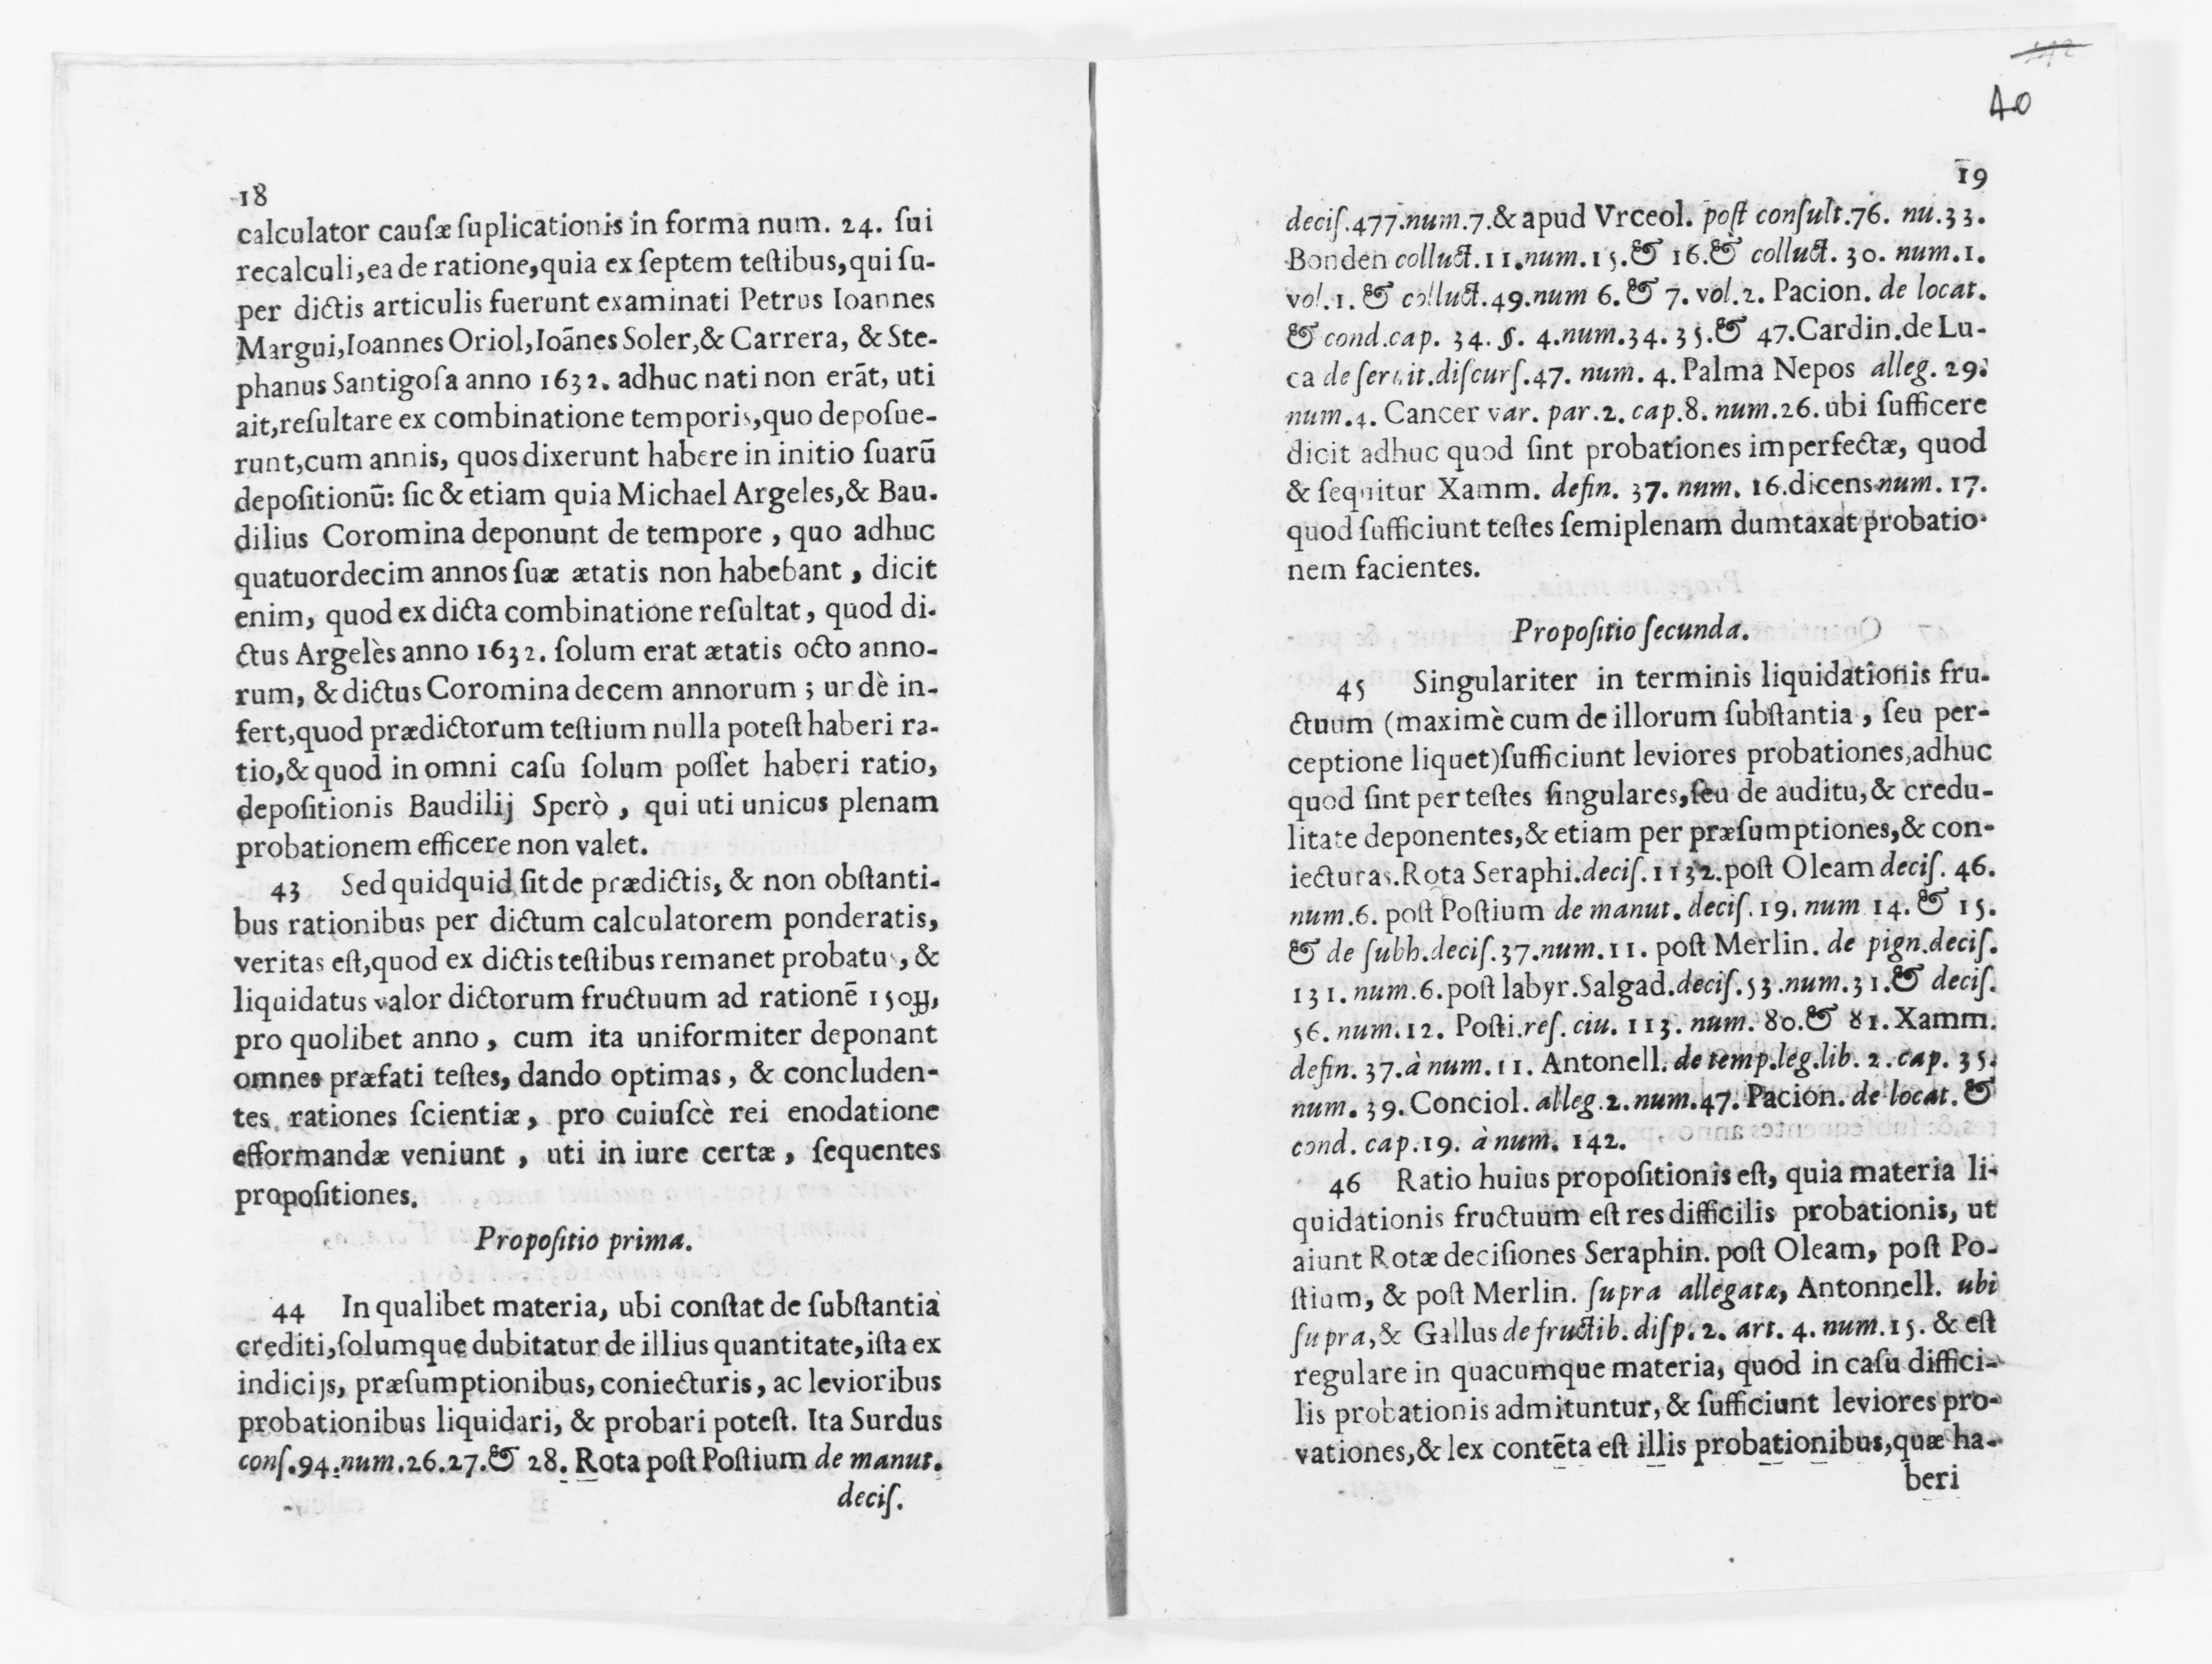 18
calculator cauſæ ſuplicationis in forma num. 24. ſui
recalculi, ea de ratione, quia ex ſeptem teſtibus, qui ſu-
per dictis articulis fuerunt examinati Petrus Ioannes
Margui, Ioannes Oriol, Ioãnes Soler, & Carrera, & Ste-
phanus Santigoſa anno 1632. adhuc nati non erãt, uti
ait, reſultare ex combinatione temporis, quo depoſue-
runt, cum annis, quos dixerunt habere in initio ſuarũ
depoſitionũ: ſic & etiam quia Michael Argeles, & Bau-
dilius Coromina deponunt de tempore, quo adhuc
quatuordecim annos ſuæ ætatis non habebant, dicit
enim, quod ex dicta combinatione reſultat, quod di-
ctus Argelès anno 1632. ſolum erat ætatis octo anno-
rum, & dictus Coromina decem annorum; undè in-
fert, quod prædictorum teſtium nulla poteſt haberi ra-
tio, & quod in omni caſu ſolum poſſet haberi ratio,
depoſitionis Baudilij Sperò, qui uti unicus plenam
probationem efficere non valet.
43 Sed quidquid ſit de prædictis, & non obſtanti-
bus rationibus per dictum calculatorem ponderatis,
veritas eſt, quod ex dictis teſtibus remanet probatus, &
liquidatus valor dictorum fructuum ad rationẽ 150
pro quolibet anno, cum ita uniformiter deponant
omnes præfati teſtes, dando optimas, & concluden-
tes rationes ſcientiæ, pro cuiuſcè rei enodatione
efformandæ veniunt, uti in iure certæ, ſequentes
propoſitiones.
Propoſitio prima.
44 In qualibet materia, ubi conſtat de ſubſtantia
crediti, ſolumque dubitatur de illius quantitate, iſta ex
indicijs, præſumptionibus, coniecturis, ac levioribus
probationibus liquidari, & probari poteſt. Ita Surdus
conſ. 94. num. 26. 27. & 28. Rota poſt Poſtium de manut.
deciſ.
40
19
deciſ. 477. num. 7. & apud Vrceol. poſt conſult. 76. nu. 33.
Bonden colluct. 11. num. 15. & 16. & colluct. 30. num. 1.
vol. 1. & colluct. 49. num 6. & 7. vol. 2. Pacion. de locat.
& cond. cap. 34. §. 4. num. 34. 35. & 47. Cardin. de Lu-
ca de ſervit. diſcurſ. 47. num. 4. Palma Nepos alleg. 29.
num. 4. Cancer var. par. 2. cap. 8. num. 26. ubi ſufficere
dicit adhuc quod ſint probationes imperfectæ, quod
& ſequitur Xamm. defin. 37. num. 16. dicens num. 17.
quod ſufficiunt teſtes ſemiplenam dumtaxat probatio-
nem facientes.
Propoſitio ſecunda.
45 Singulariter in terminis liquidationis fru-
ctuum (maximè cum de illorum ſubſtantia, ſeu per-
ceptione liquet) ſufficiunt leviores probationes, adhuc
quod ſint per teſtes ſingulares, ſeu de auditu, & credu-
litate deponentes, & etiam per præſumptiones, & con-
iecturas. Rota Seraphi. deciſ. 1132. poſt Oleam deciſ. 46.
num. 6. poſt Poſtium de manut. deciſ. 19. num 14. & 15.
& de ſubh. deciſ. 37. num. 11. poſt Merlin. de pign. deciſ.
131. num. 6. poſt labyr. Salgad. deciſ. 53. num. 31. & deciſ.
56. num. 12. Poſti. reſ. ciu. 113. num. 80. & 81. Xamm.
defin. 37. à num. 11. Antonell. de temp. leg. lib. 2. cap. 35.
num. 39. Conciol. alleg. 2. num. 47. Pacion. de locat. &
cond. cap. 19. à num. 142.
46 Ratio huius propoſitionis eſt, quia materia li-
quidationis fructuum eſt res difficilis probationis, ut
aiunt Rotæ deciſiones Seraphin. poſt Oleam, poſt Po-
ſtium, & poſt Merlin. ſupra allegatæ, Antonnell. ubi
ſupra, & Gallus de fructib. diſp. 2. art. 4. num. 15. & eſt
regulare in quacumque materia, quod in caſu diffici-
lis probationis admituntur, & ſufficiunt leviores pro-
vationes, & lex contẽta eſt illis probationibus, quæ ha-
beri